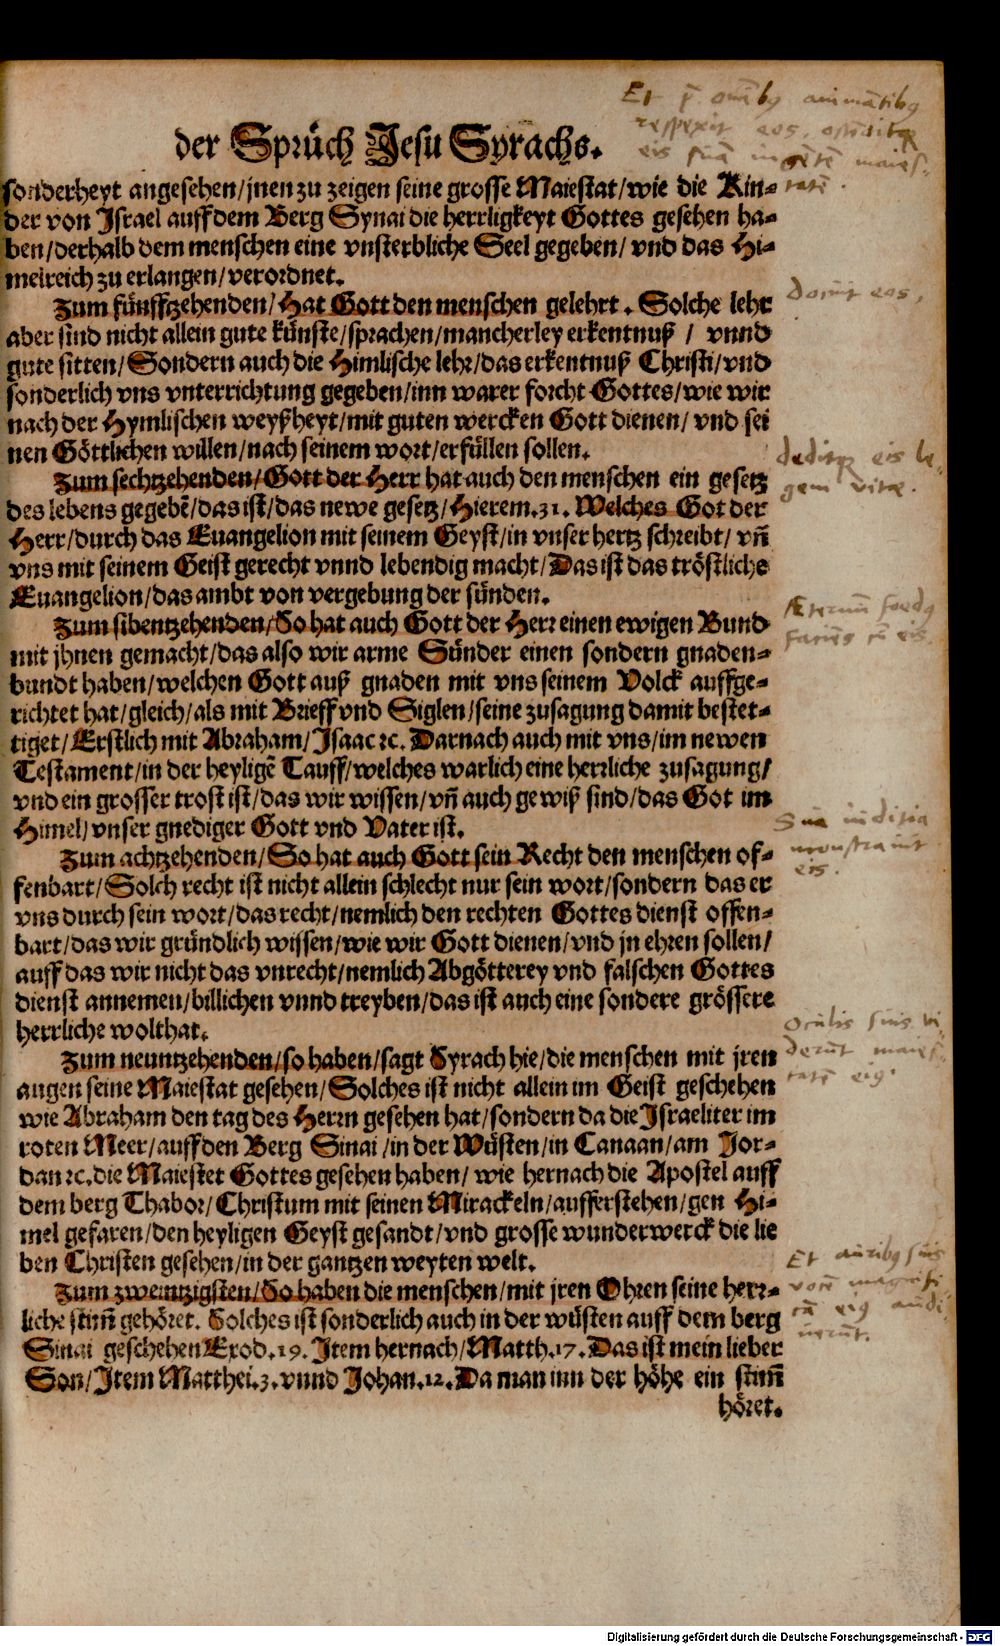 der Sprüch Jesu Syrachs.
sonderheyt angesehen/jnen zu zeigen seine grosse Maiestat/wie die Kin-
der von Israel auff dem Berg Synai die herrligkeyt Gottes gesehen ha-
ben/derhalb dem menschen eine vnsterbliche Seel gegeben/ vnd das Hi-
melreich zu erlangen/verordnet.
Zum fünfftzehenden/Hat Gott den menschen gelehrt. Solche lehr
aber sind nicht allein gute künste/sprachen/mancherley erkentnuß / vnnd
gute sitten/Sondern auch die Himlische lehr/das erkentnuß Christi/vnd
sonderlich vns vnterrichtung gegeben/inn warer forcht Gottes/wie wir
nach der Hymlischen weyßheyt/mit guten wercken Gott dienen/ vnd sei
nen Göttlichen willen/nach seinem wort/erfüllen sollen.
Zum sechtzehenden/Gott der Herr hat auch den menschen ein gesetz
des lebens gegebē/das ist/das newe gesetz/Hierem.31. Welches Got der
Herr/durch das Euangelion mit seinem Geyst/in vnser hertz schreibt/ vñ
vns mit seinem Geist gerecht vnnd lebendig macht/Das ist das tröstliche
Euangelion/das ambt von vergebung der sünden.
Zum sibentzehenden/So hat auch Gott der Herr einen ewigen Bund
mit jhnen gemacht/das also wir arme Sünder einen sondern gnaden-
bundt haben/welchen Gott auß gnaden mit vns seinem Volck auffge-
richtet hat/gleich/als mit Brieff vnd Siglen/seine zusagung damit bestet-
tiget/Erstlich mit Abraham/Isaac ꝛc. Darnach auch mit vns/im newen
Testament/in der heyligē Tauff/welches warlich eine herrliche zusagung/
vnd ein grosser trost ist/das wir wissen/vñ auch gewiß sind/das Got im
Himel/vnser gnediger Gott vnd Vater ist.
Zum achtzehenden/So hat auch Gott sein Recht den menschen of-
fenbart/Solch recht ist nicht allein schlecht nur sein wort/sondern das er
vns durch sein wort/das recht/nemlich den rechten Gottes dienst offen-
bart/das wir gründlich wissen/wie wir Gott dienen/vnd jn ehren sollen/
auff das wir nicht das vnrecht/nemlich Abgötterey vnd falschen Gottes
dienst annemen/billichen vnnd treyben/das ist auch eine sondere grössere
herrliche wolthat.
Zum neuntzehenden/so haben/sagt Syrach hie/die menschen mit jren
augen seine Maiestat gesehen/Solches ist nicht allein im Geist geschehen
wie Abraham den tag des Herrn gesehen hat/sondern da die Israeliter im
roten Meer/auff den Berg Sinai/in der Wüsten/in Canaan/am Jor-
dan ꝛc. die Maiestet Gottes gesehen haben/ wie hernach die Apostel auff
dem berg Thabor/Christum mit seinen Mirackeln/aufferstehen/gen Hi-
mel gefaren/den heyligen Geyst gesandt/vnd grosse wunderwerck die lie
ben Christen gesehen/in der gantzen weyten welt.
Zum zweintzigsten/So haben die menschen/mit jren Ohren seine herr-
liche stim̄ gehöret. Solches ist sonderlich auch in der wüsten auff dem berg
Sinai geschehen Exod.19. Item hernach/Matth.17. Das ist mein lieber
Son/Item Matthei.3. vnnd Johan.12. Da man inn der höhe ein stim̄
höret.
Et p̄ omībꝰ animātibꝰ
respexit eos, ostēditqꝫ
eis suā ingētē maies-
tatē.
Docuit eos,
deditqꝫ eis le-
gem vitæ.
Æternum foedꝰ
faciēs cū eis
Sua iuditia
monstrauit
eis.
Oculis suis vi-
derūt maies-
tatē eiꝰ
Et auribꝰ suis
vocē magnifi-
cā eiꝰ audi-
uerūt.
Digitalisierung gefördert durch die Deutsche Forschungsgemeinschaft - DFG